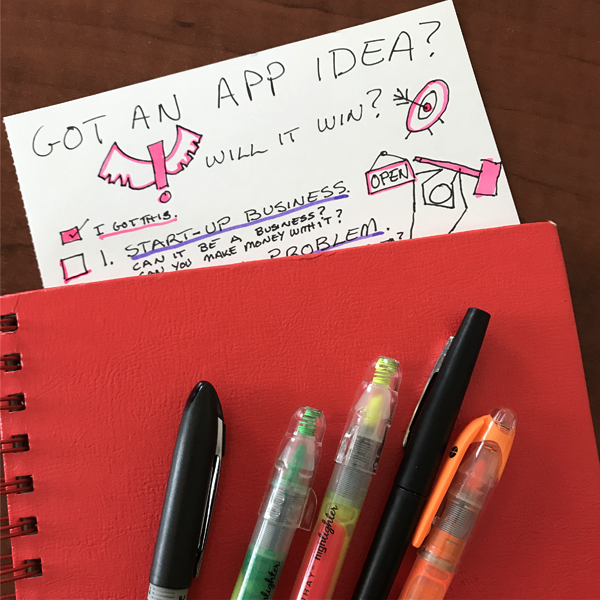 GOT AN APP IDEA?
WILL IT WIN?
OPEN
I GOT THIS.
1. START-UP BUSINESS.
CAN IT BE A BUSINESS?
CAN YOU MAKE MONEY WITH IT?
PROBLEM.
?
highlighter
highlighter